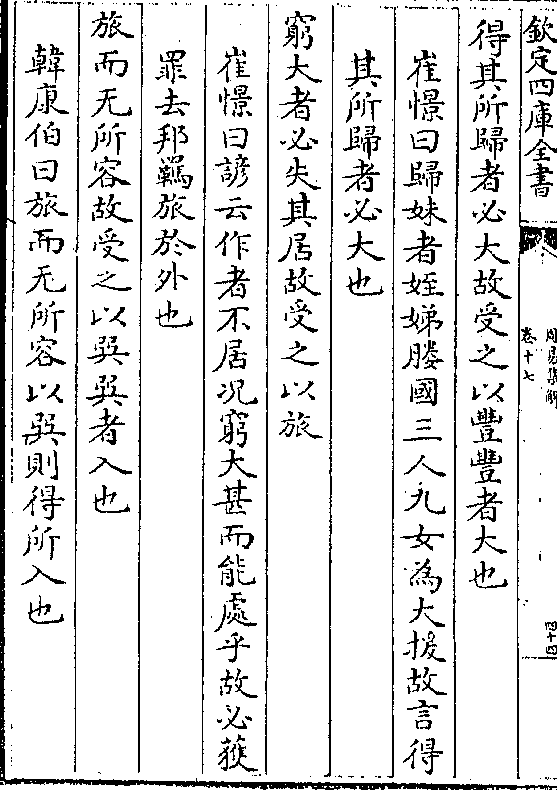 欽定四庫全書
周易集解
卷十七
四十四
得其所歸者必大故受之以豐豐者大也
崔憬曰歸妹者姪娣媵國三人九女為大援故言得
其所歸者必大也
窮大者必失其居故受之以旅
崔憬曰諺云作者不居况窮大甚而能處乎故必獲
罪去邦羈旅於外也
旅而无所容故受之以巽巽者入也
韓康伯曰旅而无所容以巽則得所入也